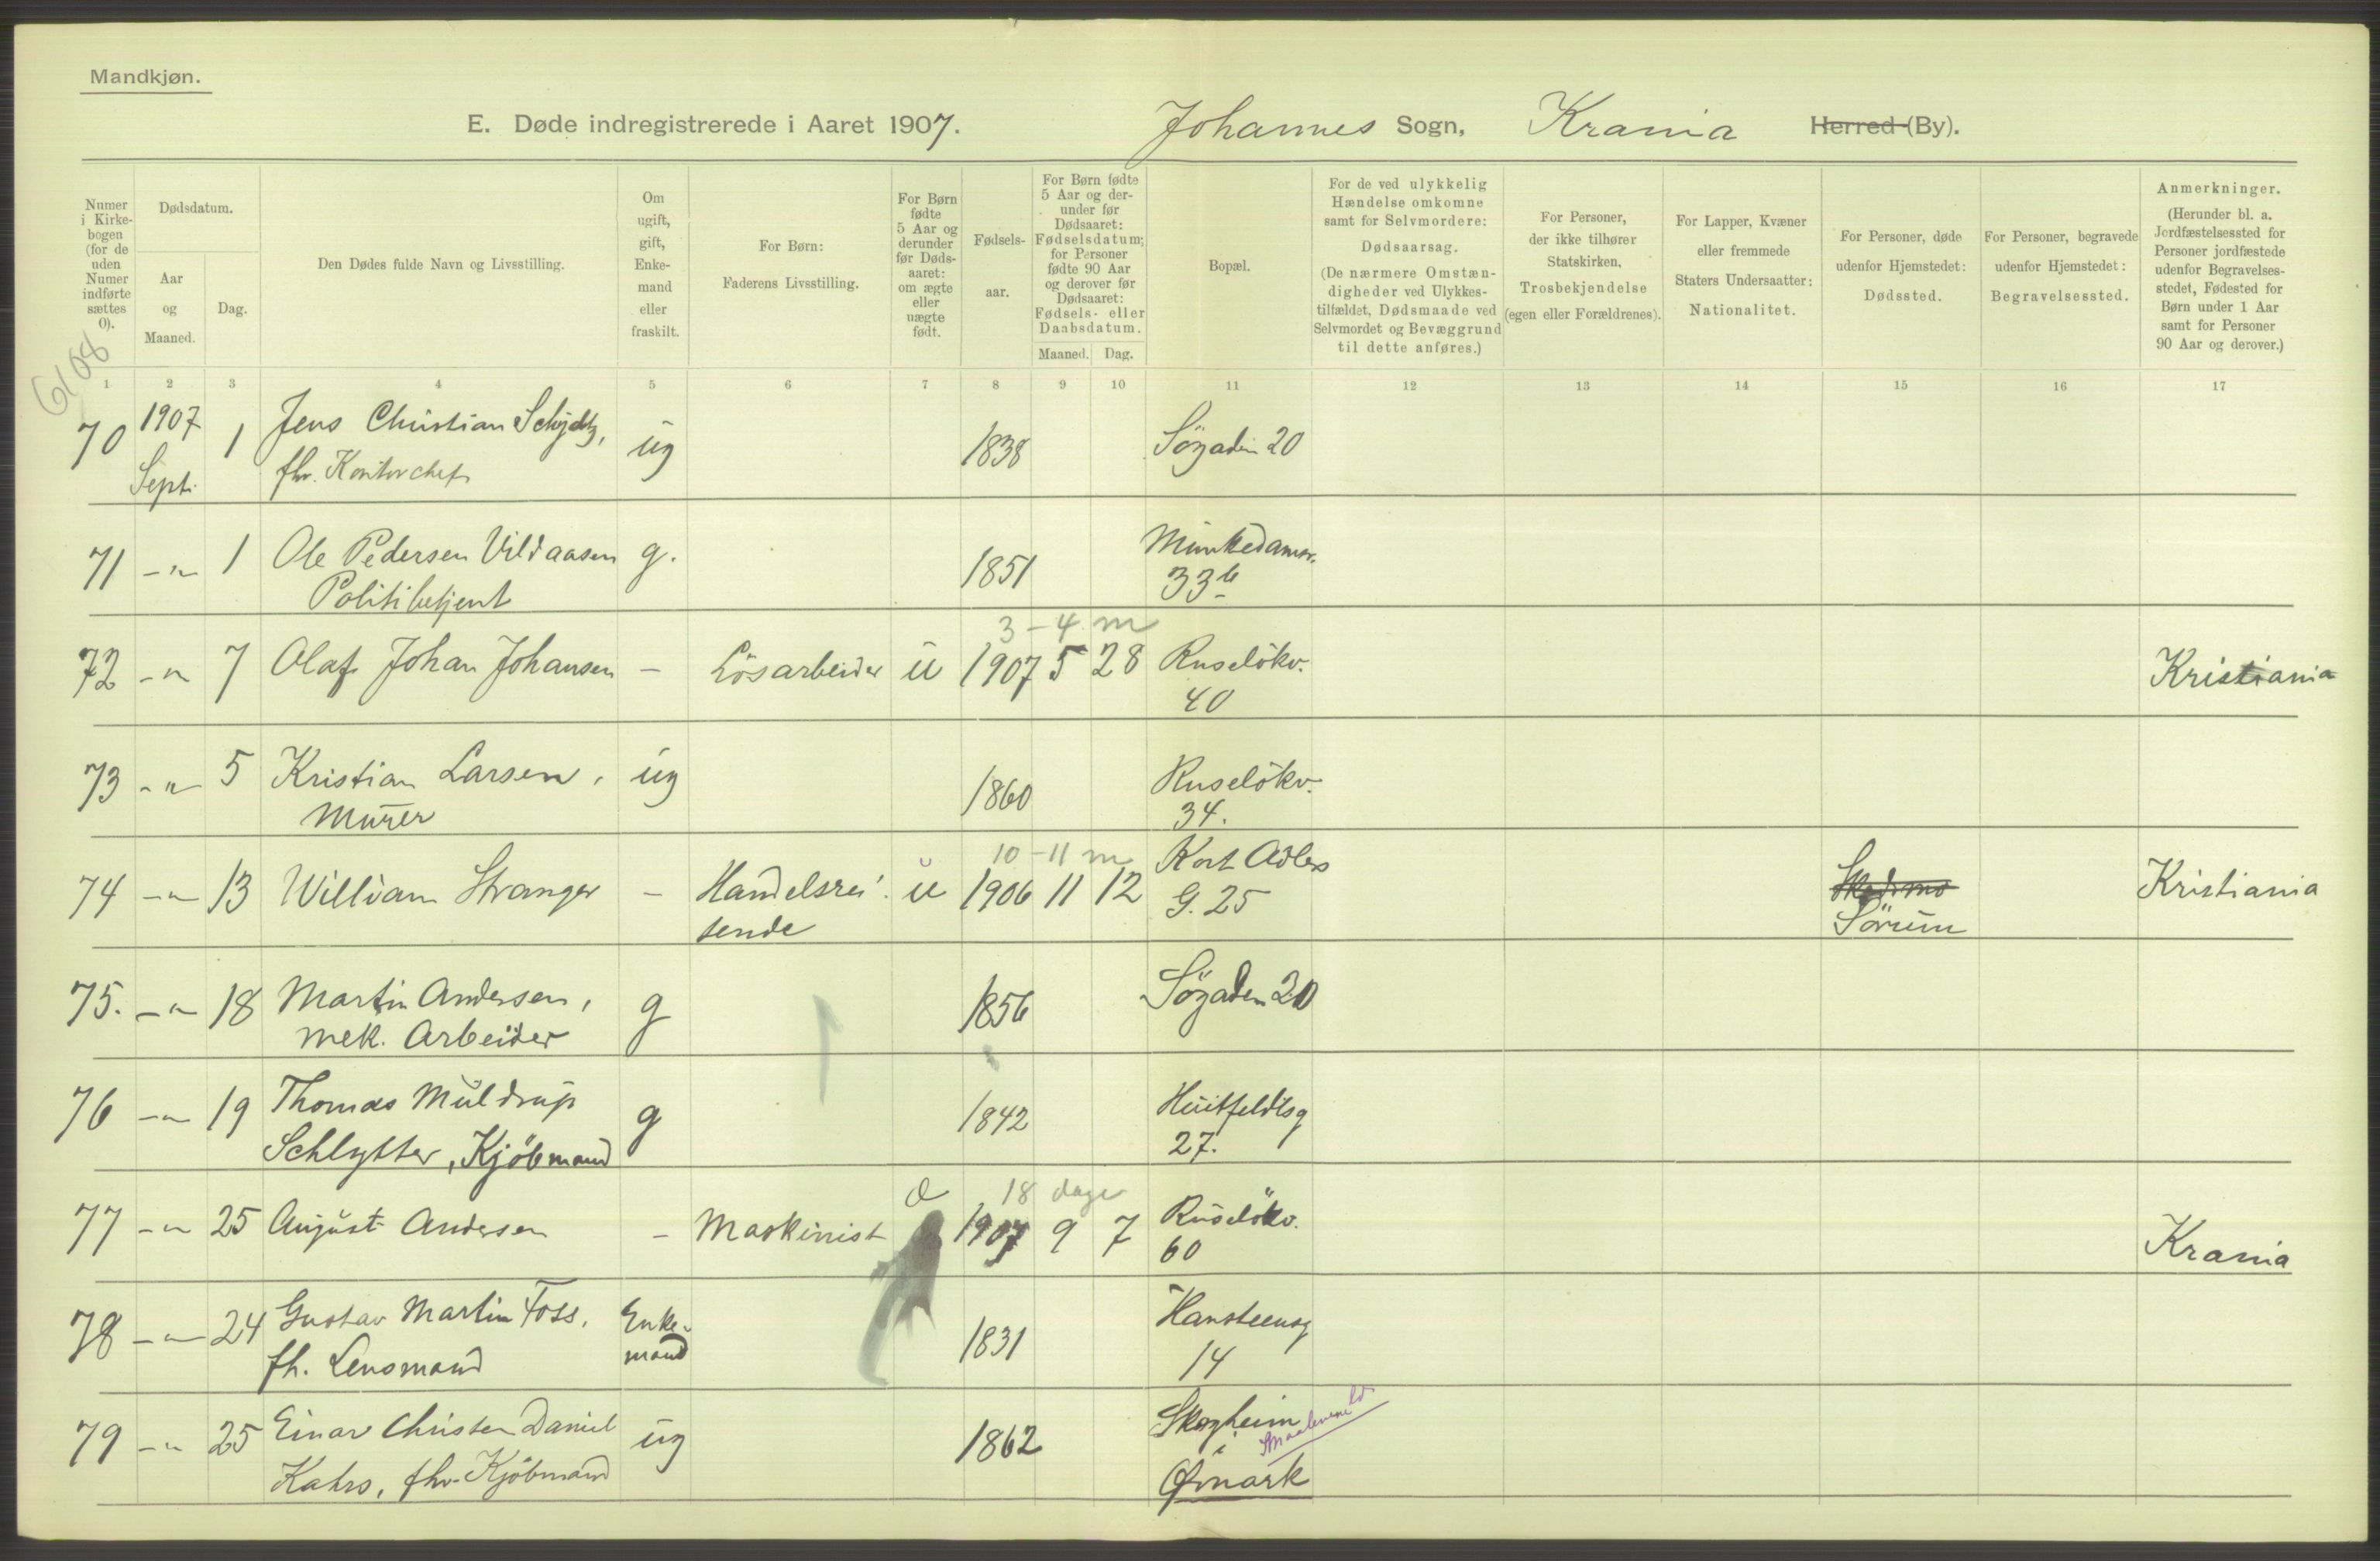 Mandkjøn.
E. Døde indregistrerede i Aaret 1907. Johannes Sogn, Krania Herred (By).
Numer i Kirke-bogen (for de uden Numer indførte sættes 0).
Dødsdatum.
Aar og Maaned.
Dag.
Den Dødes fulde Navn og Livsstilling.
Om ugift, gift, Enke-mand eller fraskilt.
For Børn: Faderens Livsstilling.
For Børn fødte 5 Aar og derunder før Døds-aaret: om ægte eller uægte født.
Fødsels-aar.
For Børn fødte 5 Aar og der-under før Dødsaaret: Fødselsdatum; for Personer fødte 90 Aar og derover før Dødsaaret: Fødsels- eller Daabsdatum.
Maaned. Dag.
Bopæl.
For de ved ulykkelig Hændelse omkomne samt for Selvmordere: Dødsaarsag. (De nærmere Omstæn-digheder ved Ulykkes-tilfældet, Dødsmaade ved Selvmordet og Bevæggrund til dette anføres.)
For Personer, der ikke tilhører Statskirken, Trosbekjendelse (egen eller Forældrenes).
For Lapper, Kvæner eller fremmede Staters Undersaatter: Nationalitet.
For Personer, døde udenfor Hjemstedet: Dødssted.
For Personer, begravede udenfor Hjemstedet: Begravelsessted.
Anmerkninger. (Herunder bl. a. Jordfæstelsessted for Personer jordfæstede udenfor Begravelses-stedet, Fødested for Børn under 1 Aar samt for Personer 90 Aar og derover.)
6108
1 2 3 4 5 6 7 8 9 10 11 12 13 14 15 16 17
70 1907 Sept. 1 Jens Christian Schjøtz, ug 1838 Søgaden 20
fhv. Kontorchef
71 -"- 1 Ole Pedersen Vildaasen g. 1851 Munkedamsv.
Politibetjent 33b
3-4 m
72 -"- 7 Olaf Johan Johansen - Løsarbeider u 1907 5 28 Ruseløkv. Kristiania
40
73 -"- 5 Kristian Larsen, ug 1860 Ruseløkv.
Murer 34.
10-11 m
74 -"- 13 William Stranger - Handelsrei- u 1906 11 12 Kort Adlers Skedsmo Kristiania
sende G. 25 Sørum
75. -"- 18 Martin Andersen, g 1856 Søgaden 20
mek. Arbeider
76 -"- 19 Thomas Muldrup g 1842 Huitfeldtsg
Schlytter, Kjøbmand 27.
18 dage
77 -"- 25 August Andersen - Maskinist 1907 9 7 Ruseløkv. Krania
60
78 -"- 24 Gustav Martin Foss, Enke- 1831 Hansteensg
fh. Lensmand mand 14
79 -"- 25 Einar Christen Daniel ug 1862 Skogheim
Kahrs, fhv. Kjøbmand i Smaalenene
Ømark